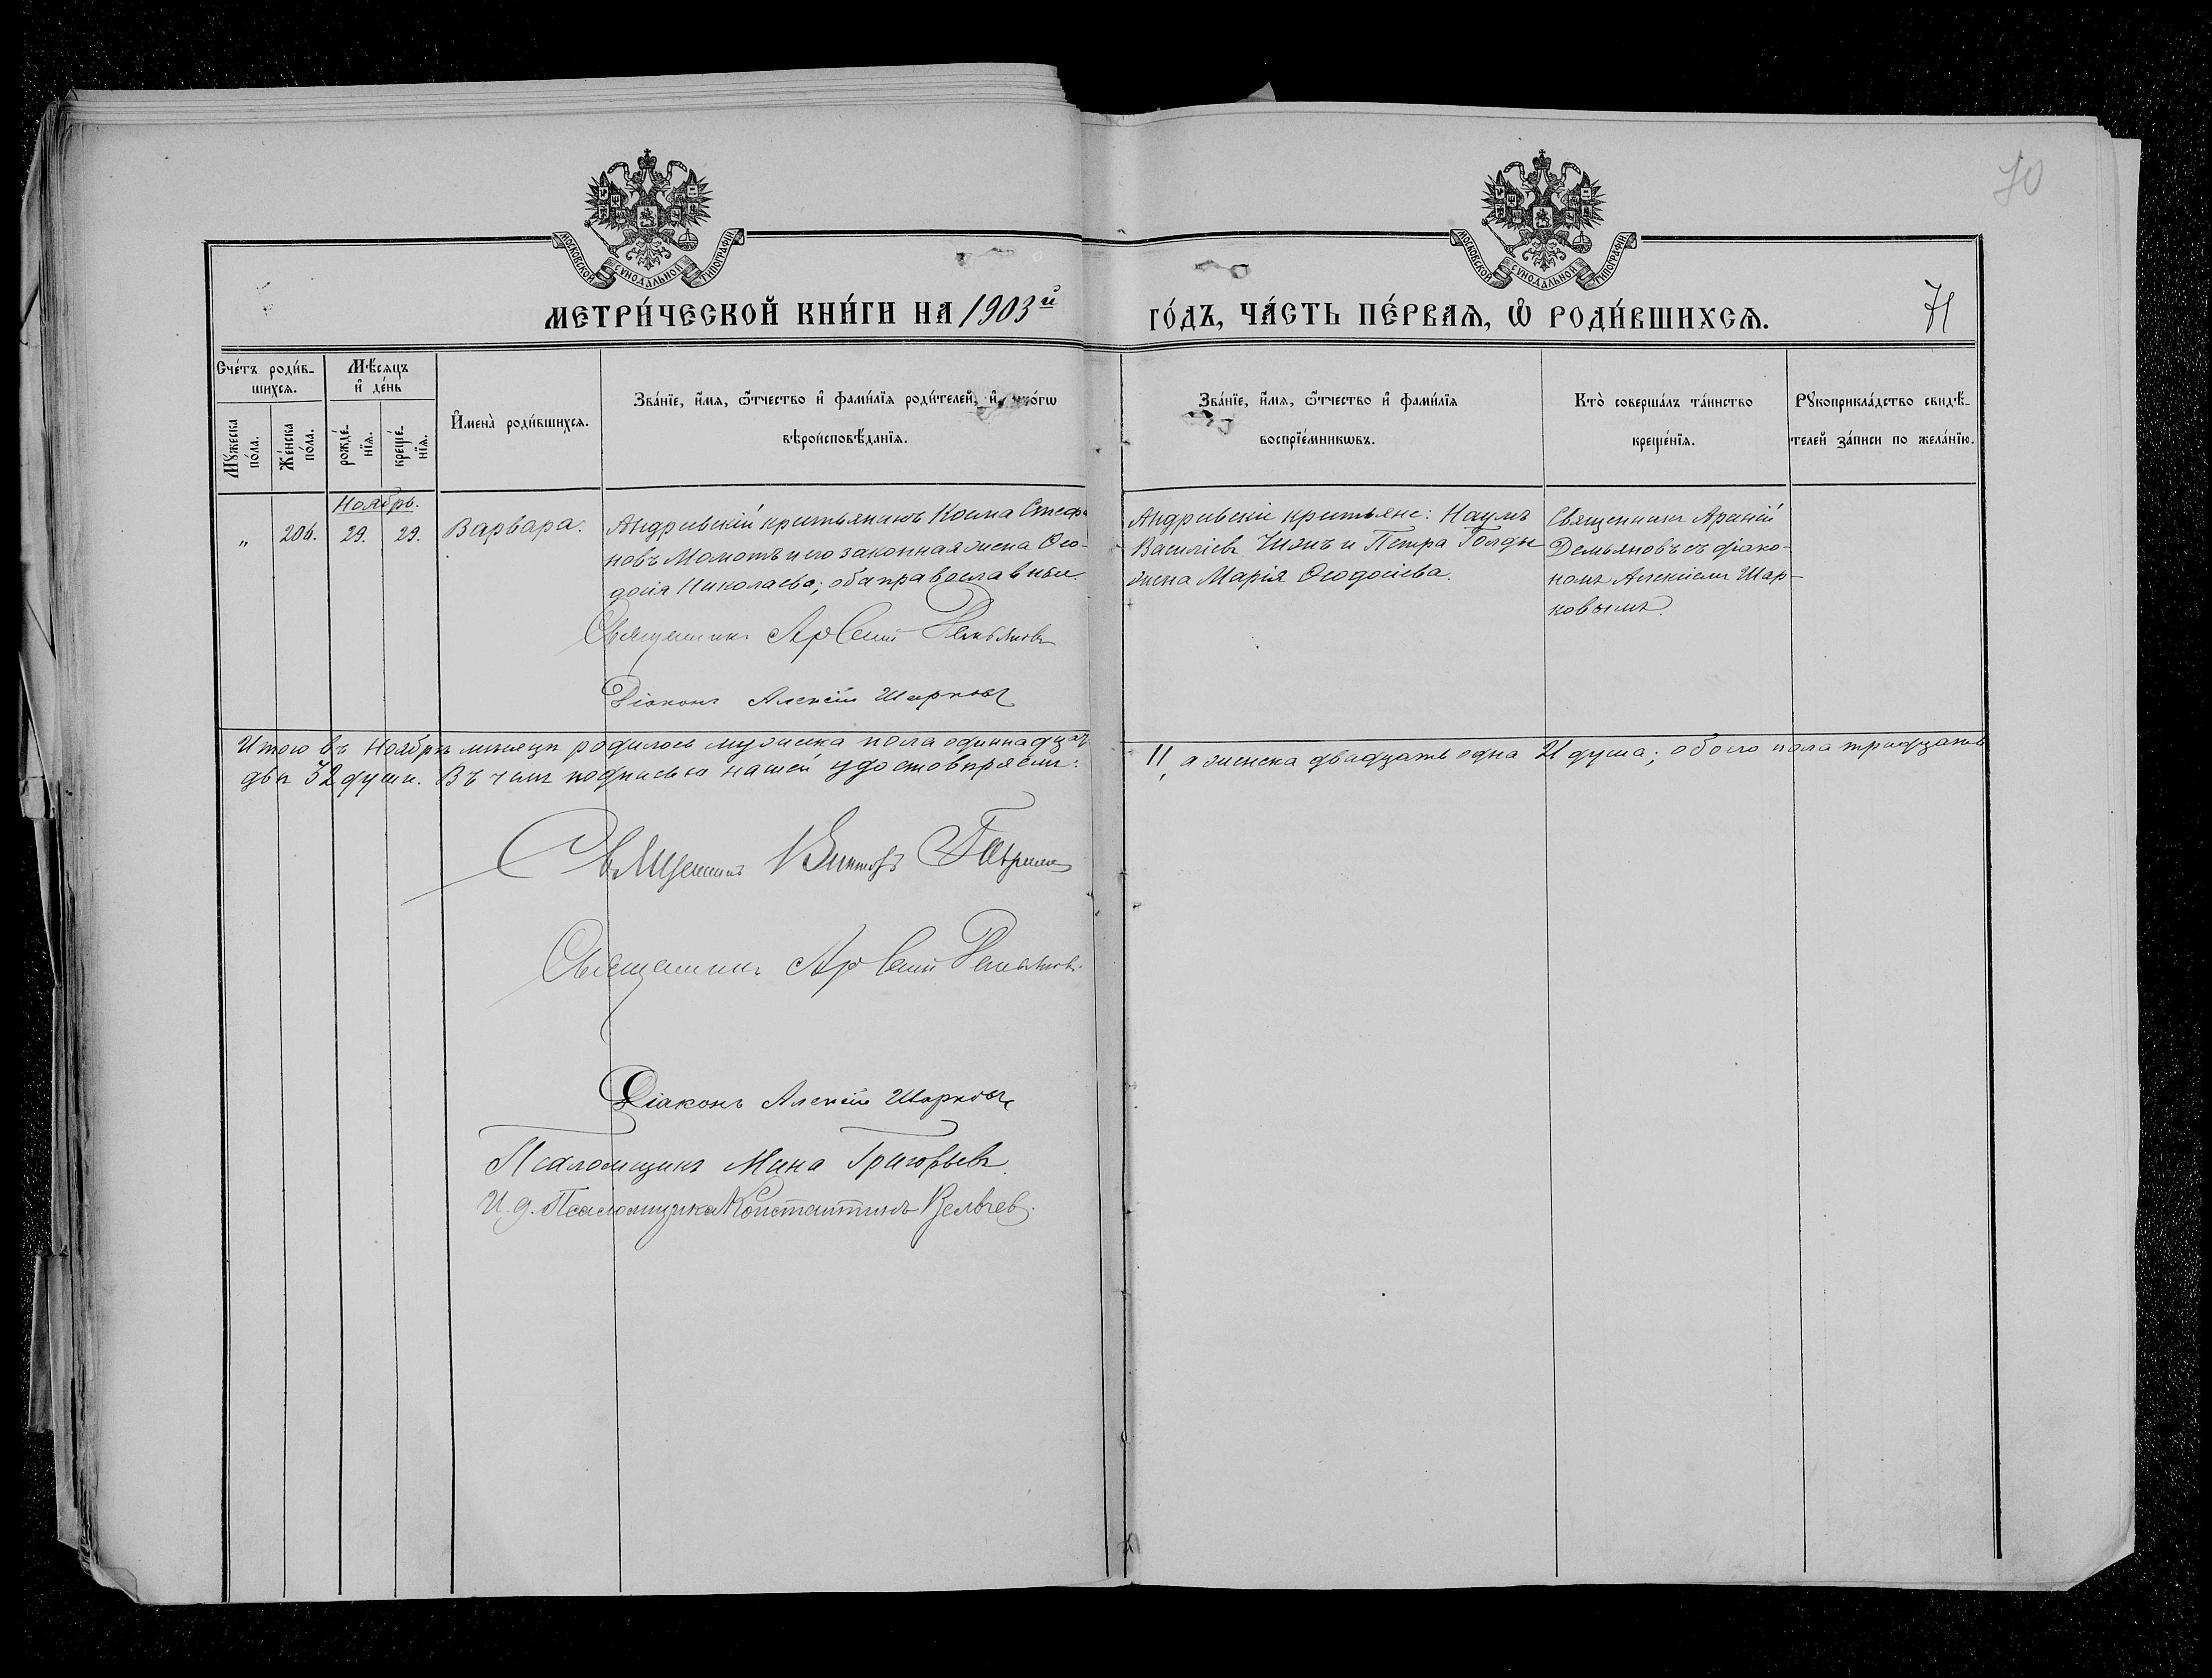 70
МОСКОВСКОЙ СУНОДАЛЬНОЙ ТИПОГРАФІИ
МОСКОВСКОЙ СУНОДАЛЬНОЙ ТИПОГРАФІИ
МЕТРИ́ЧЕСКОЙ КНИ́ГИ НА 1903й
ГО́ДЪ, ЧА́СТЬ ПЕ́РВАѦ, Ѡ҆ РОДИ́ВШИХСѦ.
71
Сче́тъ роди́в-
шихсѧ.
Мꙋ́жеска
по́ла.
Же́нска
по́ла.
Мѣ́сѧцъ
и҆ де́нь
рожде́-
нїѧ.
креще́-
нїѧ.
И҆мена̀ роди́вшихсѧ.
Зва́нїе, и҆́мѧ, ѻ҆́тчество и҆ фами́лїѧ роди́телей, и҆ како́гѡ
вѣроисповѣ́данїѧ.
Зва́нїе, и҆́мѧ, ѻ҆́тчество и҆ фами́лїѧ
воспрїе́мникѡвъ.
Кто̀ соверша́лъ та́инство
креще́нїѧ.
Рꙋкоприкла́дство свидѣ́-
телей за́писи по жела́нїю.
Ноябрь.
„ 206. 29. 29. Варвара.
Андреевскій крестьянинъ Косма Стефа
новъ Момотъ и его законная жена Ѳео-
досія Николаева; оба православные.
Андреевскіе крестьяне: Наумъ
Василіевъ Чижъ и Петра Голды
жена Марія Ѳеодосіева.
Священникъ Арсеній
Демьяновъ съ діако-
номъ Алексіемъ Шар-
ковымъ.
Священникъ Арсеній Демьяновъ
Діаконъ Алексій Шарковъ
Итого въ Ноябрѣ мѣсяцѣ родилось мужеска пола одиннадцать 11, а женска двадцать одна 21 душа; обоего пола тридцать
двѣ 32 души. Въ чемъ подписью нашей удостовѣряемъ:
Священникъ Викторъ
Священникъ Арсеній Демьяновъ
Діаконъ Алексій Шарковъ
Псаломщикъ Мина Григорьевъ.
И. д. Псаломщика Константинъ Вельчев.